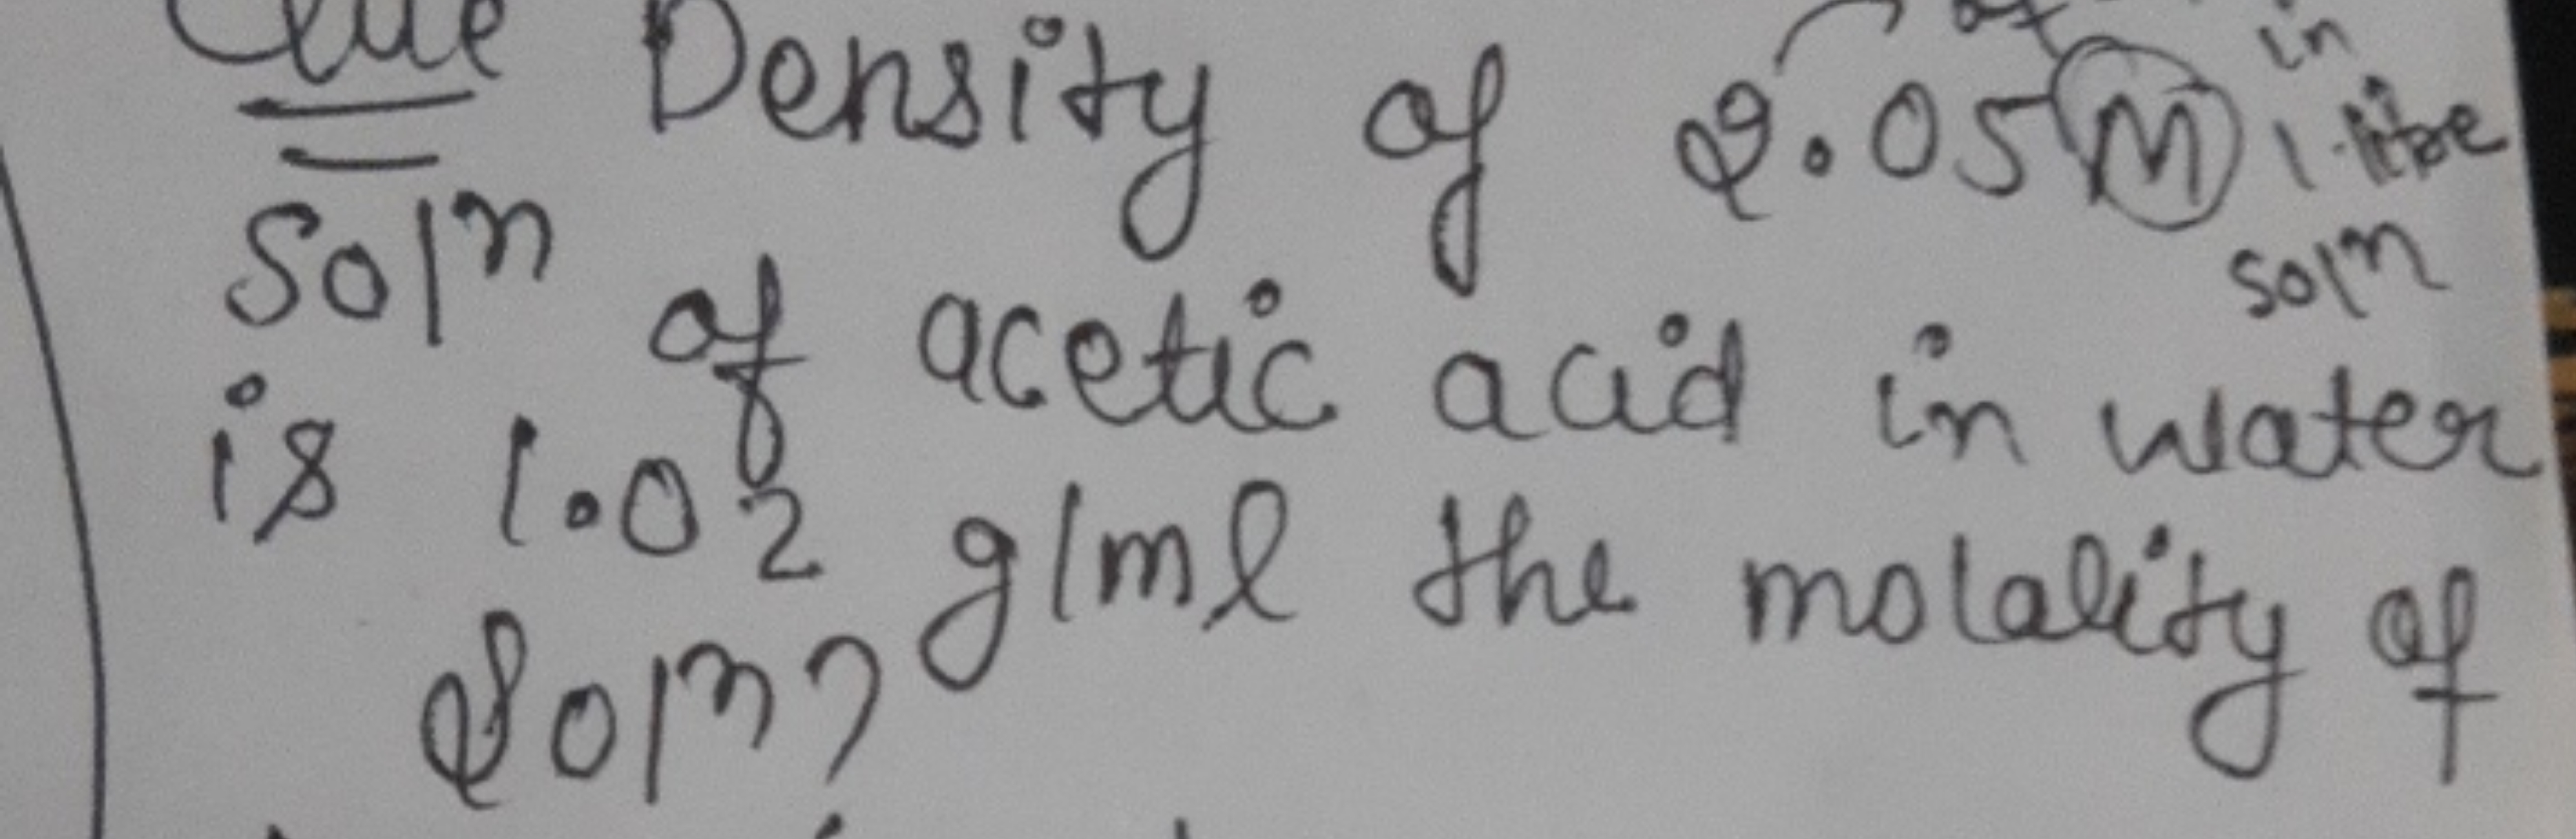 Que Density of 2.05 M in
1 litre
soln
soln of acetic acid in water
is 1.02 g/ml the molality of
soln?